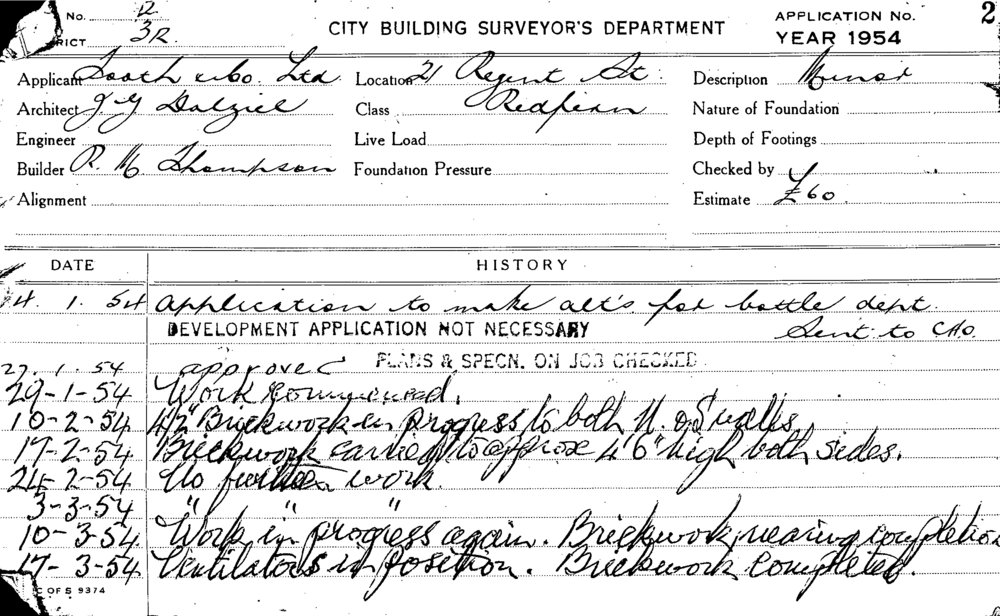 No. 12
CITY BUILDING SURVEYOR'S DEPARTMENT
APPLICATION No. 2
RICT 3R.
YEAR 1954
Applicant Tooth & Co. Ltd. Location 21 Regent St. Description Minor
Architect J. G. Dalziel Class Redfern Nature of Foundation
Engineer Live Load Depth of Footings
Builder R. M. Thompson Foundation Pressure Checked by
Alignment Estimate £60
DATE HISTORY
14. 1. 54 Application to make alt's for bottle dept.
DEVELOPMENT APPLICATION NOT NECESSARY Sent to
27. 1. 54 approved PLANS & SPECN. ON JOB CHECKED
29-1-54 Work commenced.
10-2-54 4½" Brickwork in progress to both N. & S walls.
17-2-54 Brickwork carried to approx 4'6" high both sides.
24-2-54 No further work.
3-3-54 " " "
10-3-54 Work in progress again. Brickwork nearing completion
17-3-54 Ventilators in position. Brickwork completed.
C OF S 9374